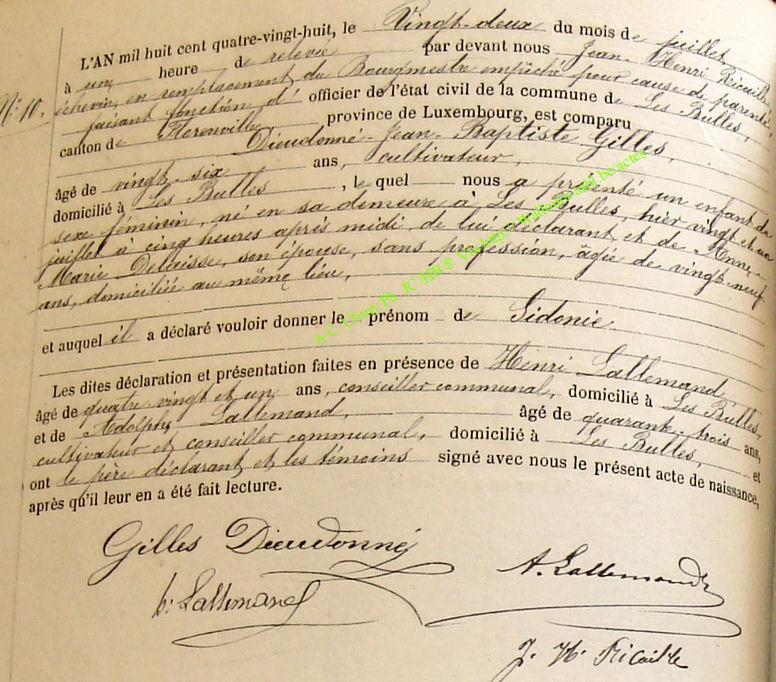 L'AN mil huit cent quatre-vingt-huit, le Vingt-deux du mois de juillet
à une heure de relevée par devant nous Jean-Henri Ricaille,
N° 10. échevin, en remplacement du Bourgmestre empêché pour cause de parenté
faisant fonction d' officier de l'état civil de la commune de Les Bulles,
canton de Florenville province de Luxembourg, est comparu
Dieudonné-Jean-Baptiste Gilles,
âgé de vingt-six ans, cultivateur,
domicilié à Les Bulles, le quel nous a présenté un enfant du
sexe féminin, né en sa demeure à Les Bulles, hier vingt et un
juillet à cinq heures après midi, de lui déclarant et de Anne-
Marie Delaisse, son épouse, sans profession, âgée de vingt-neuf
ans, domiciliée au même lieu,
et auquel il a déclaré vouloir donner le prénom de Sidonie
Les dites déclaration et présentation faites en présence de Henri Lallemand
âgé de quatre vingt et un ans, conseiller communal, domicilié à Les Bulles,
et de Adolphe Lallemand, âgé de quarante-trois ans,
cultivateur et conseiller communal, domicilié à Les Bulles, et
ont le père déclarant et les témoins signé avec nous le présent acte de naissance,
après qu'il leur en a été fait lecture.
Gilles Dieudonné
A. Lallemand
h. Lallemand
J. H. Ricaille